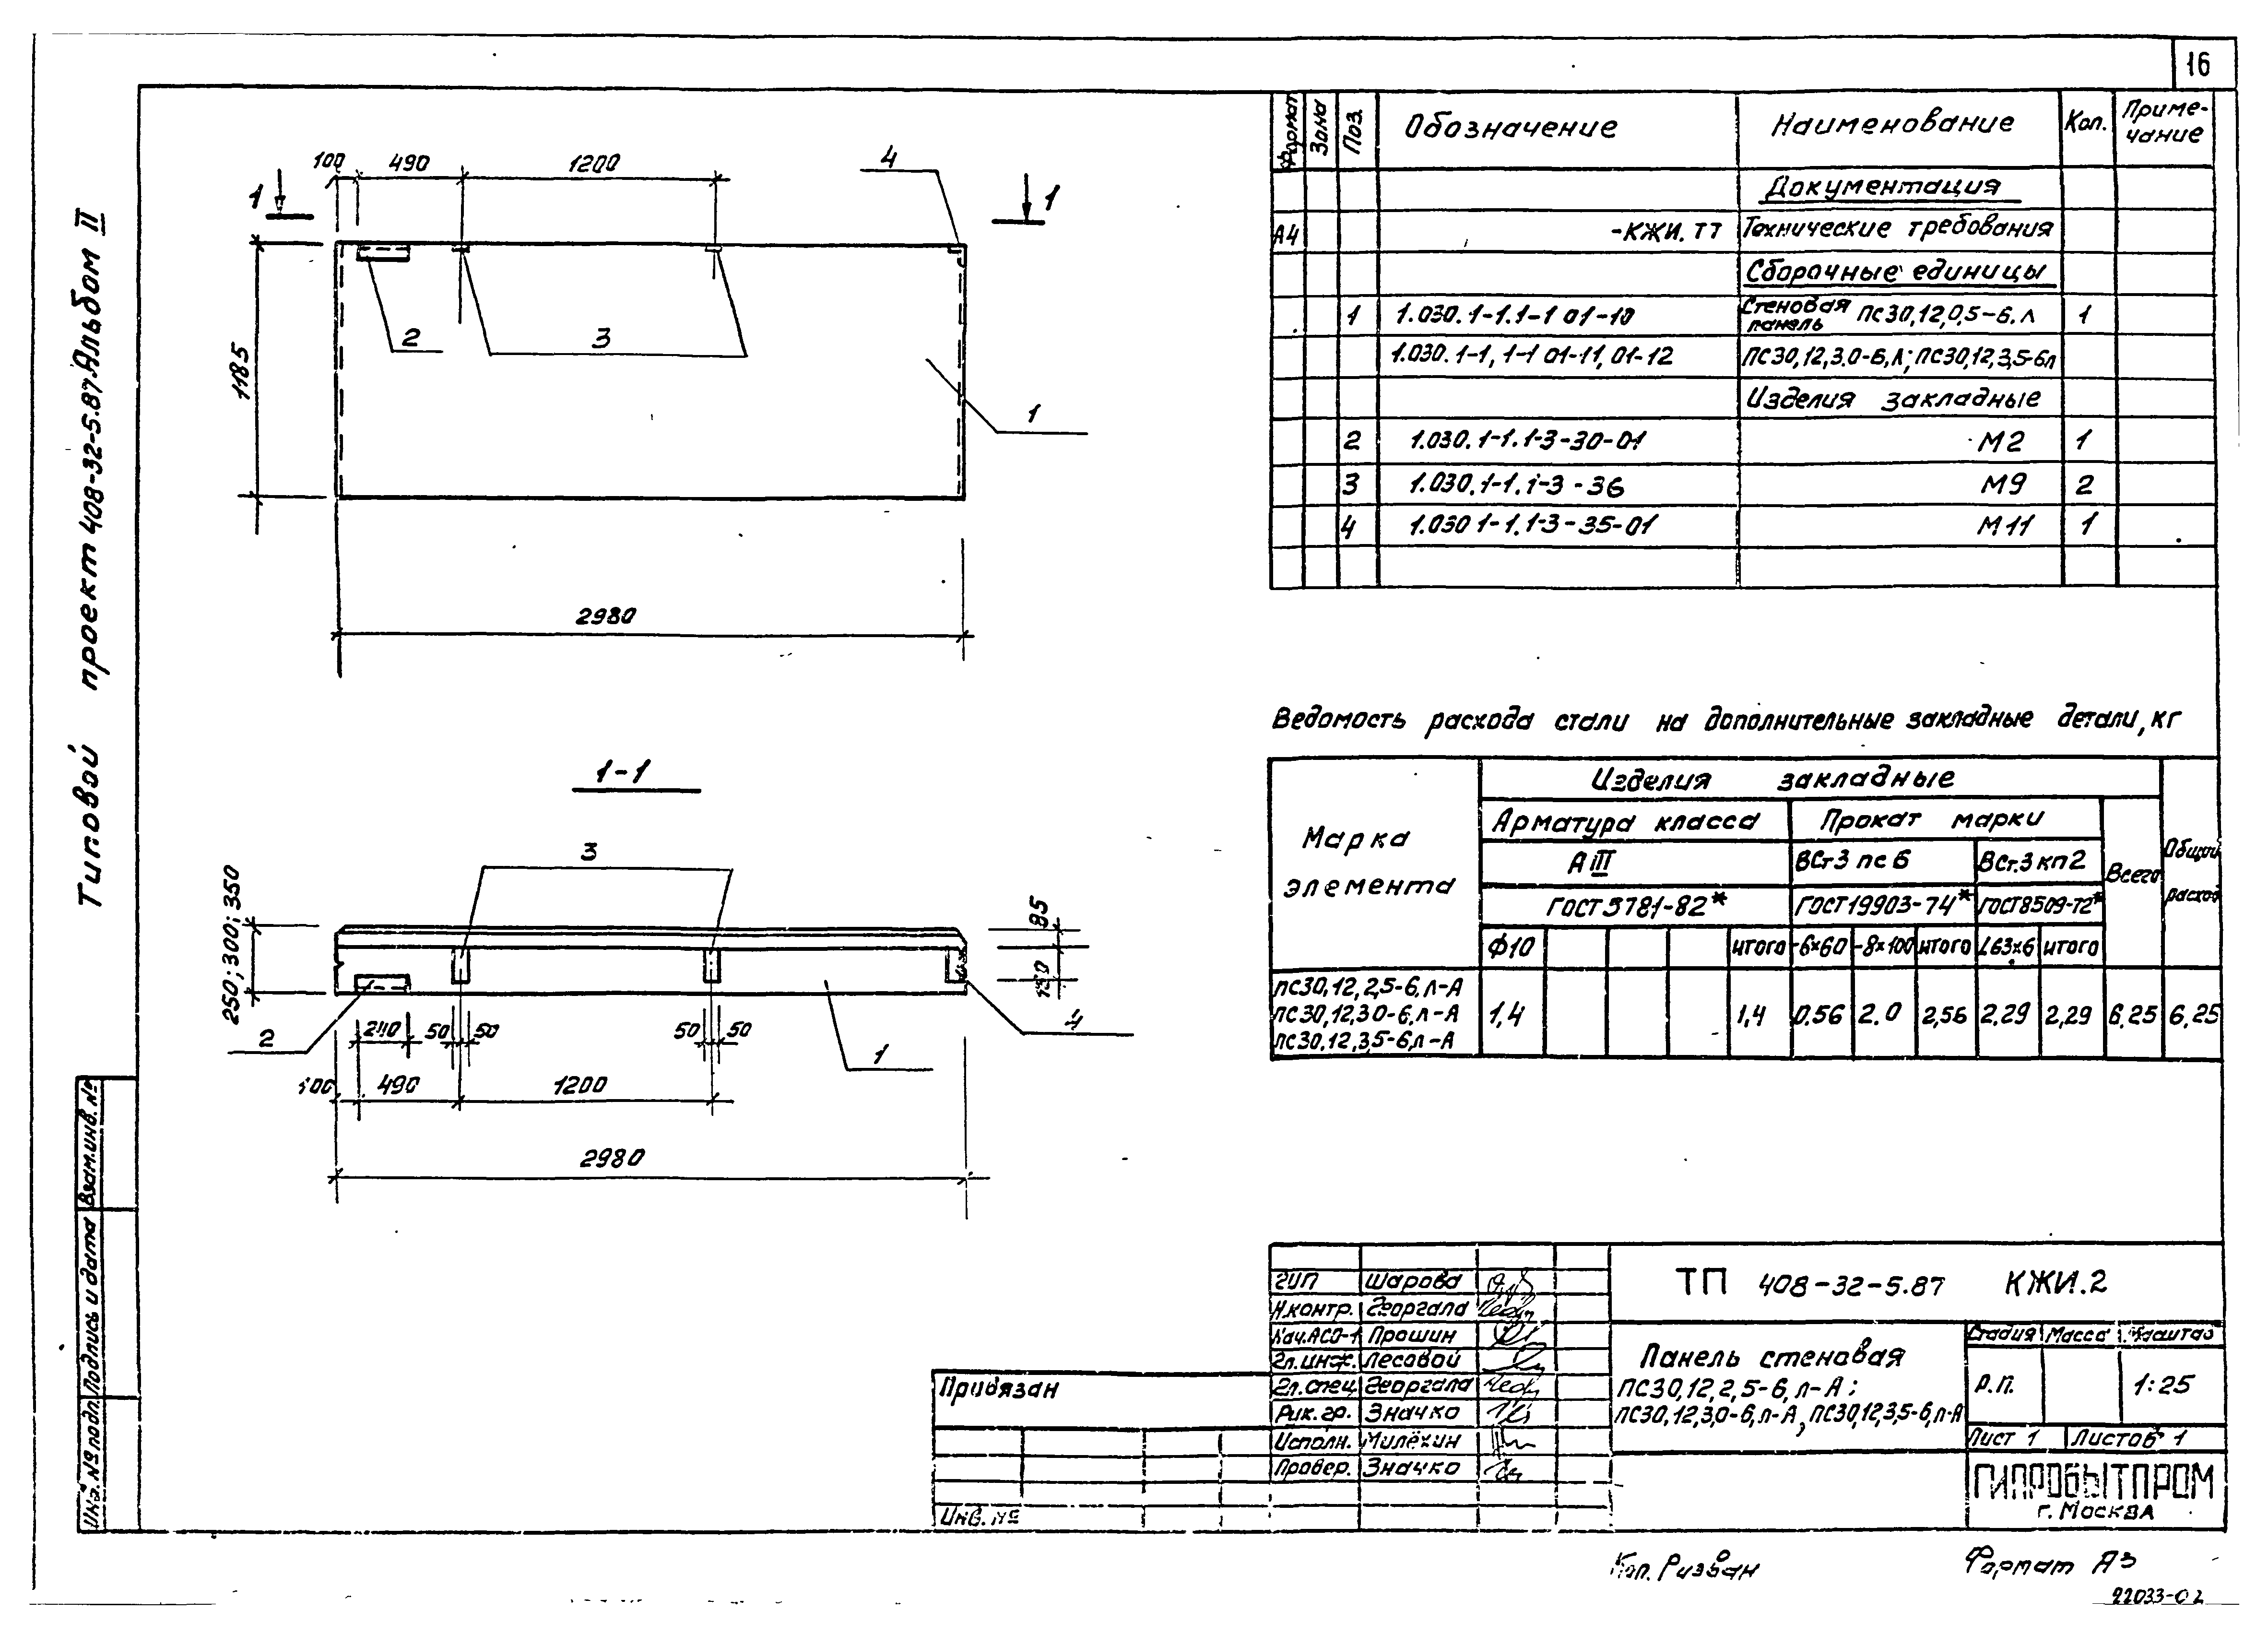 16
Типовой проект 408-32-5.87. Альбом II
100 490 1200 4
1 1
1185
2 3
1
2980
1-1
3
250; 300; 350
85
130
2 240 50 50 50 50 4
1
100 490 1200
2980
Формат Зона Поз. Обозначение Наименование Кол. Приме-
чание
Документация
А4 -КЖИ.ТТ Технические требования
Сборочные единицы
1 1.030.1-1.1-1 01-10 Стеновая панель ПС30,12,0,5-6.л 1
1.030.1-1,1-1 01-11, 01-12 ПС30,12,3.0-6,л; ПС30,12,3,5-6л
Изделия закладные
2 1.030.1-1.1-3-30-01 М2 1
3 1.030.1-1.1-3-36 М9 2
4 1.030 1-1.1-3-35-01 М11 1
Ведомость расхода стали на дополнительные закладные детали, кг
Марка элемента
Изделия закладные
Общий расход
Арматура класса Прокат марки Всего
А III ВСт3 пс 6 ВСт.3 кп2
ГОСТ 5781-82* ГОСТ 19903-74* ГОСТ 8509-72*
ф10 итого -6×60 -8×100 итого L63×6 итого
ПС30,12,2,5-6,л-А
ПС30,12,3,0-6,л-А
ПС30,12,3,5-6,л-А
1,4 1,4 0,56 2.0 2,56 2,29 2,29 6,25 6,25
Взам.инв. №
Подпись и дата
Инв. № подл.
Привязан
Инв. №
ГИП Шарова
Н.контр. Георгала
Нач.АСО-1 Прошин
Гл.инж. Лесовой
Гл.спец. Георгала
Рук.гр. Значко
Исполн. Милехин
Провер. Значко
ТП 408-32-5.87 КЖИ.2
Панель стеновая
ПС30,12,2,5-6,л-А;
ПС30,12,3,0-6,л-А, ПС30,12,3,5-6,л-А
Стадия Масса Масштаб
Р.П. 1:25
Лист 1 Листов 1
ГИПРОБЫТПРОМ
г. Москва
Коп. Ризван Формат А3
22033-02